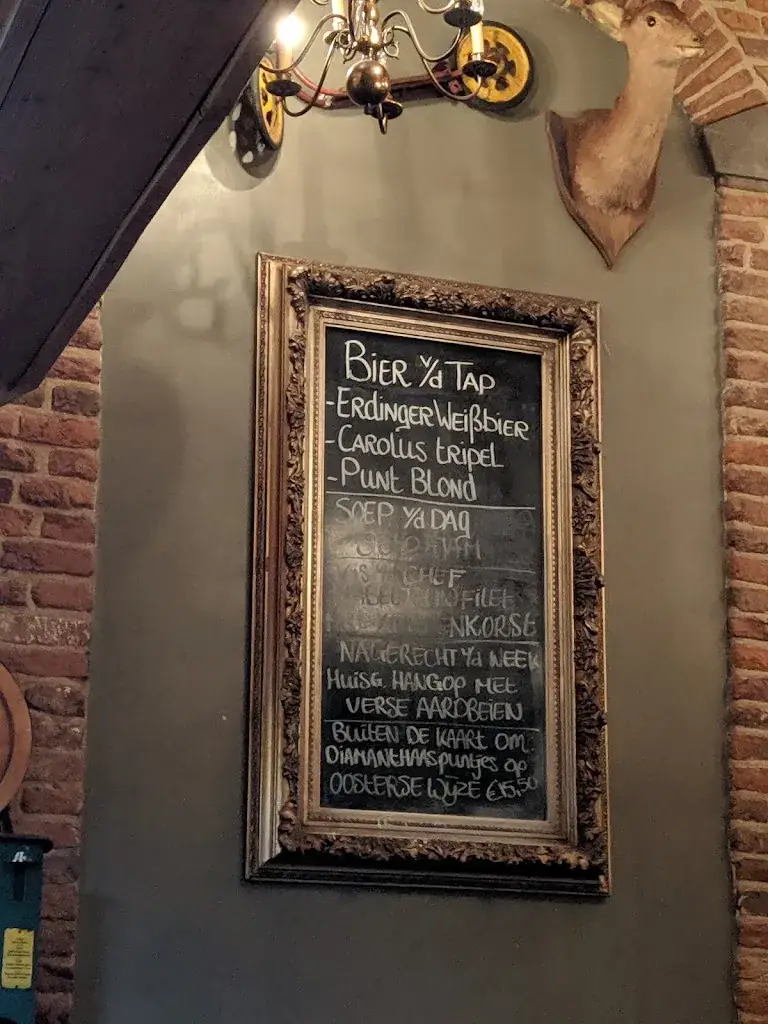 BIER v/d TAP
-ERdINGER WEIßbIER
-CAROLUS tRIPEL
-PUNt BLONd
SOEP v/d DAG
CHEF
FILEt
NAGERECHT v/d WEEK
HUISG. HANGOP MEt
VERSE AARDBEIEN
BUItEN DE KAARt OM:
DIAMANtHAASpuNtjes op
OOSTERSE WIJZE €15,50